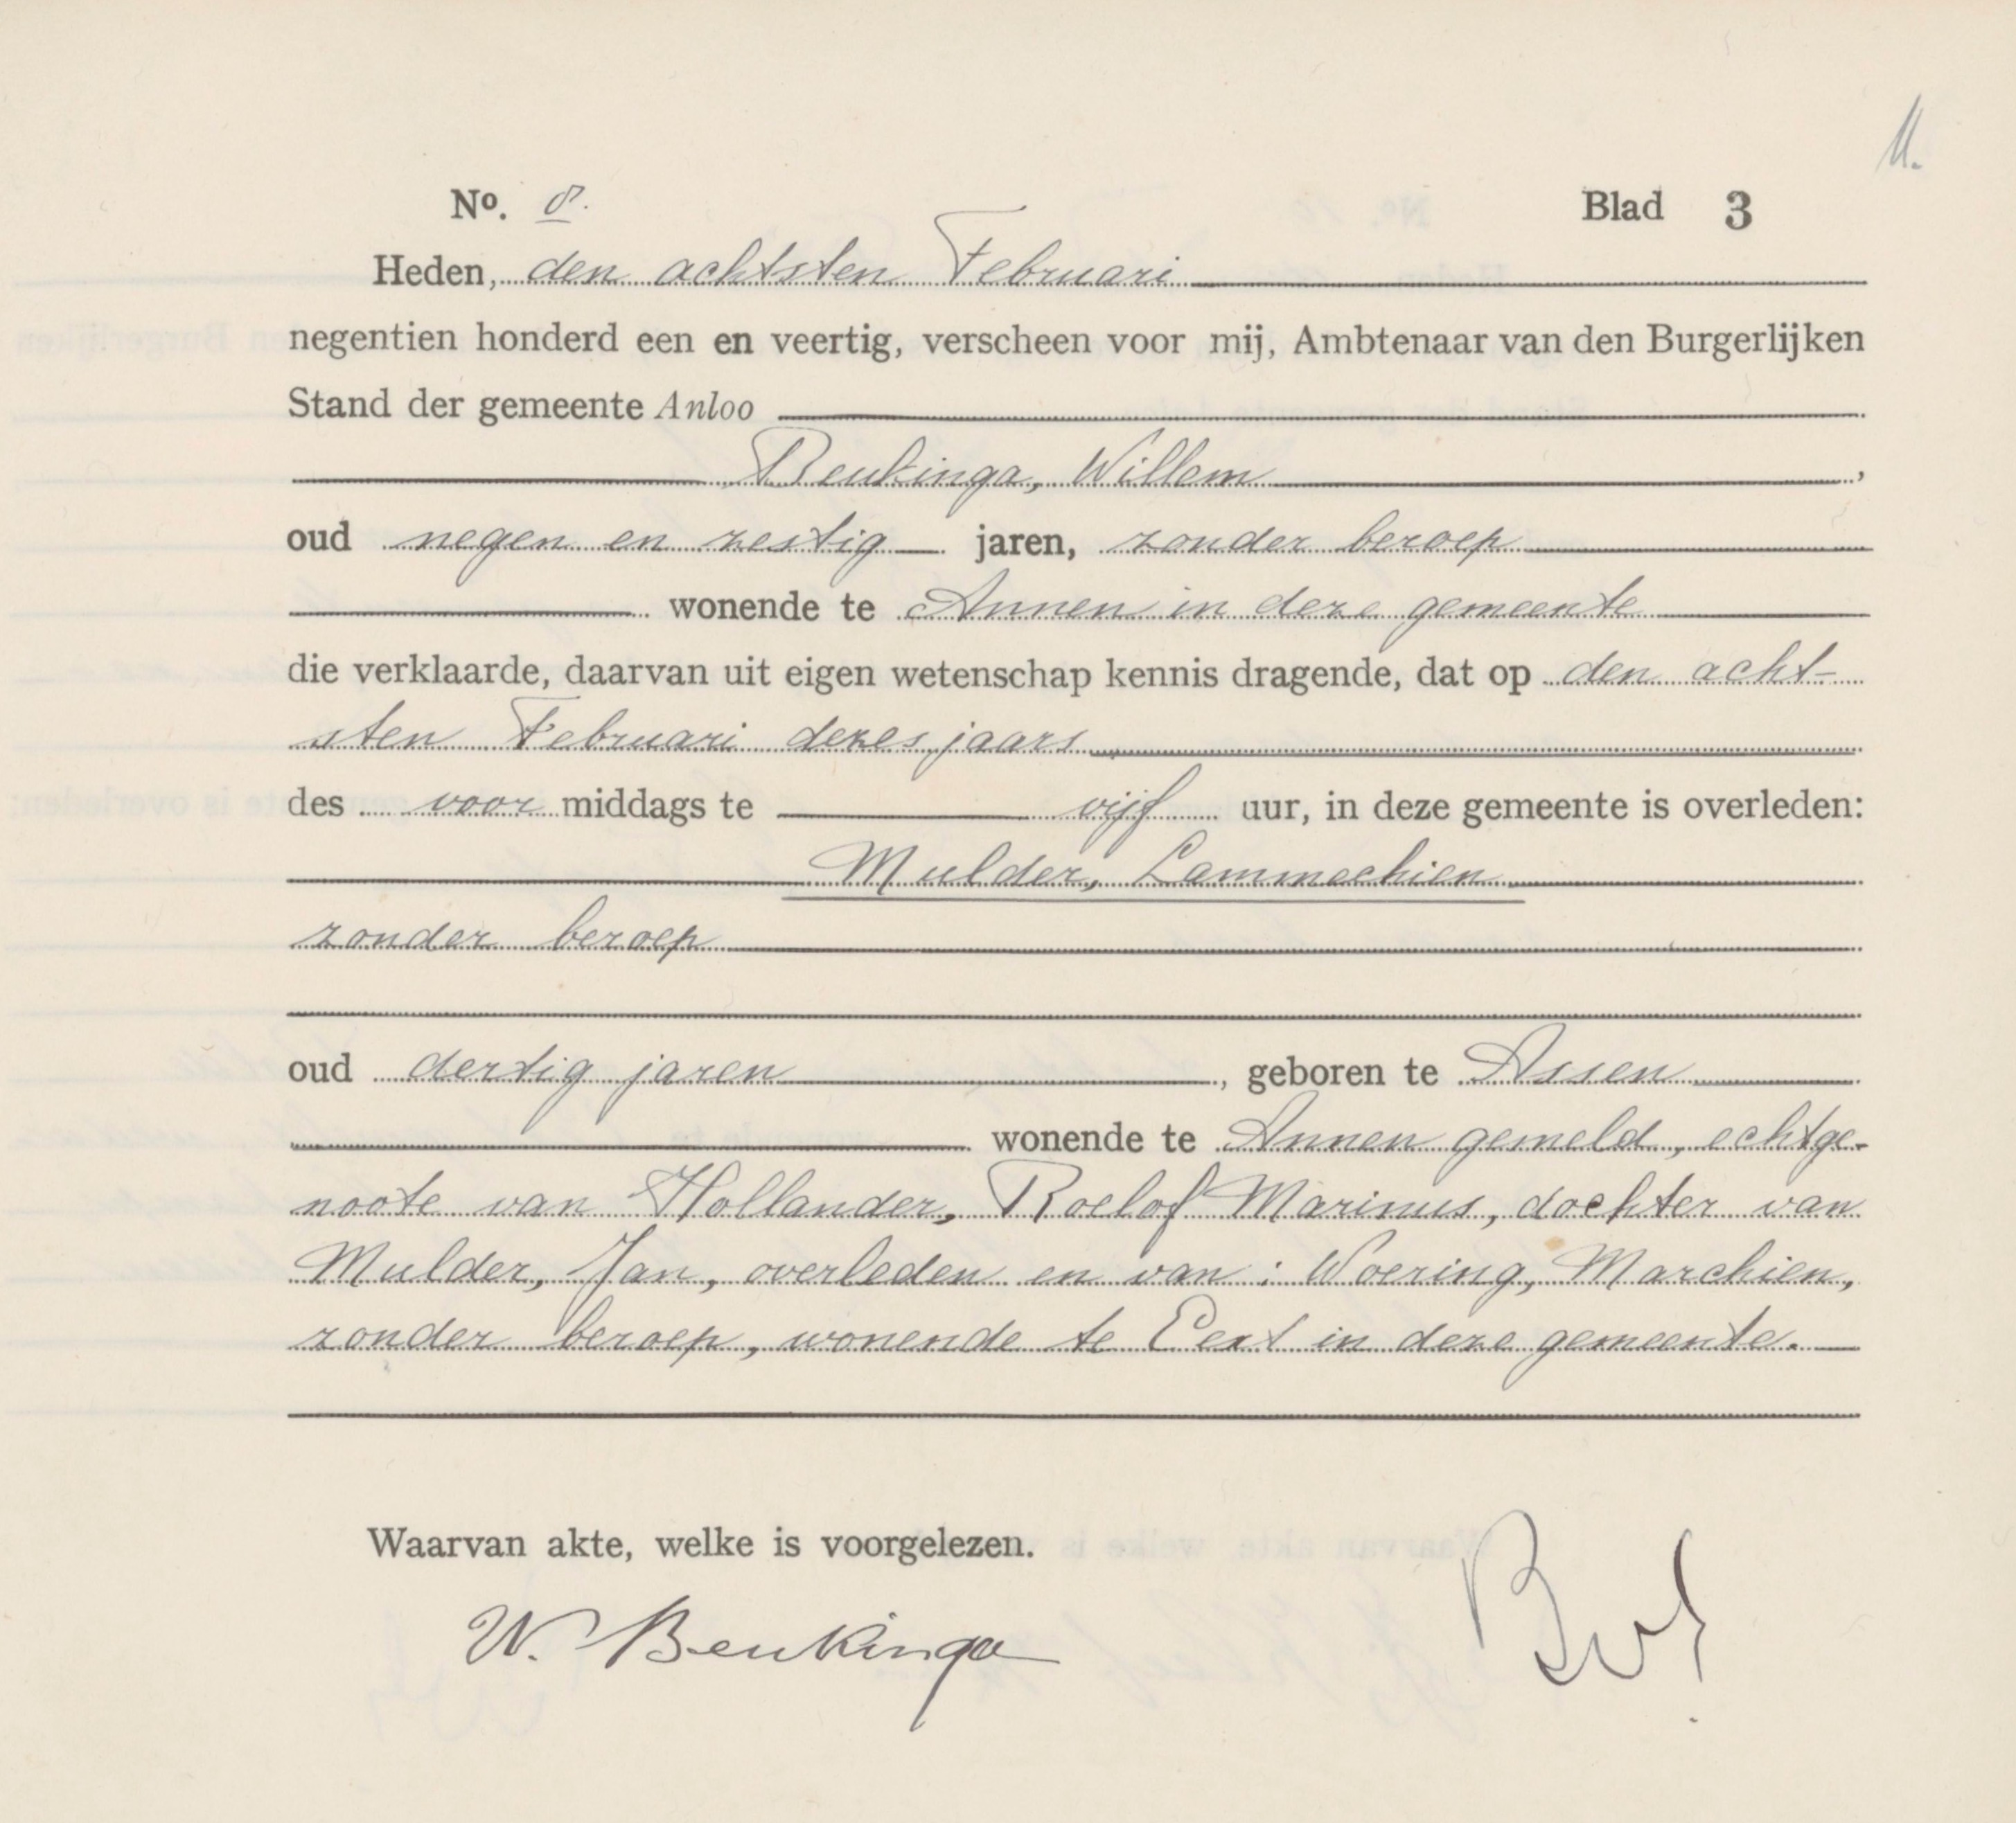 M.
No. 8. Blad 3
Heden, den achtsten Februari
negentien honderd een en veertig, verscheen voor mij, Ambtenaar van den Burgerlijken
Stand der gemeente Anloo
Beukinga, Willem ,
oud negen en zestig jaren, zonder beroep
wonende te Annen in deze gemeente
die verklaarde, daarvan uit eigen wetenschap kennis dragende, dat op den acht-
sten Februari dezes jaars
des voor middags te vijf uur, in deze gemeente is overleden:
Mulder, Lammechien
zonder beroep
oud dertig jaren , geboren te Assen
wonende te Annen gemeld, echtge-
noote van Hollander, Roelof Marinus, dochter van
Mulder, Jan, overleden en van: Woering, Marchien,
zonder beroep, wonende te Eext in deze gemeente.
Waarvan akte, welke is voorgelezen.
W. Beukinga